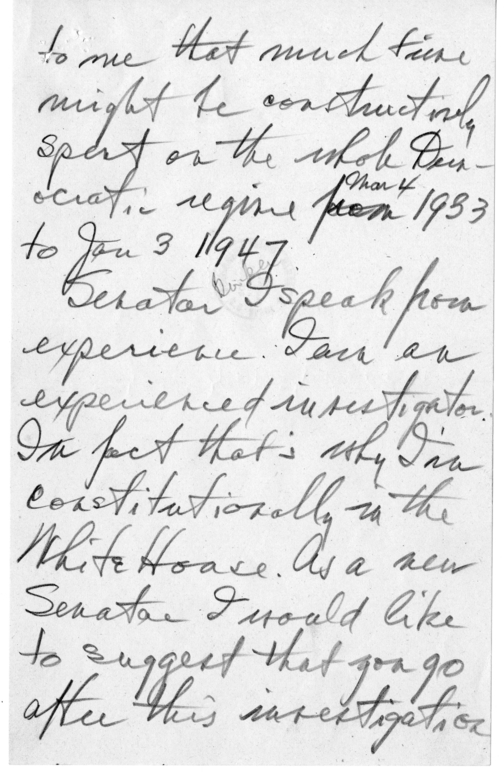 to me that much time
might be constructively
spent on the whole Dem-
ocratic regime from Mar 4 1933
to Jan 3 1947
Senator I speak from
experience. I am an
experienced investigator.
In fact that's why I'm
constitutionally in the
White House. As a new
Senator I would like
to suggest that you go
after this investigation